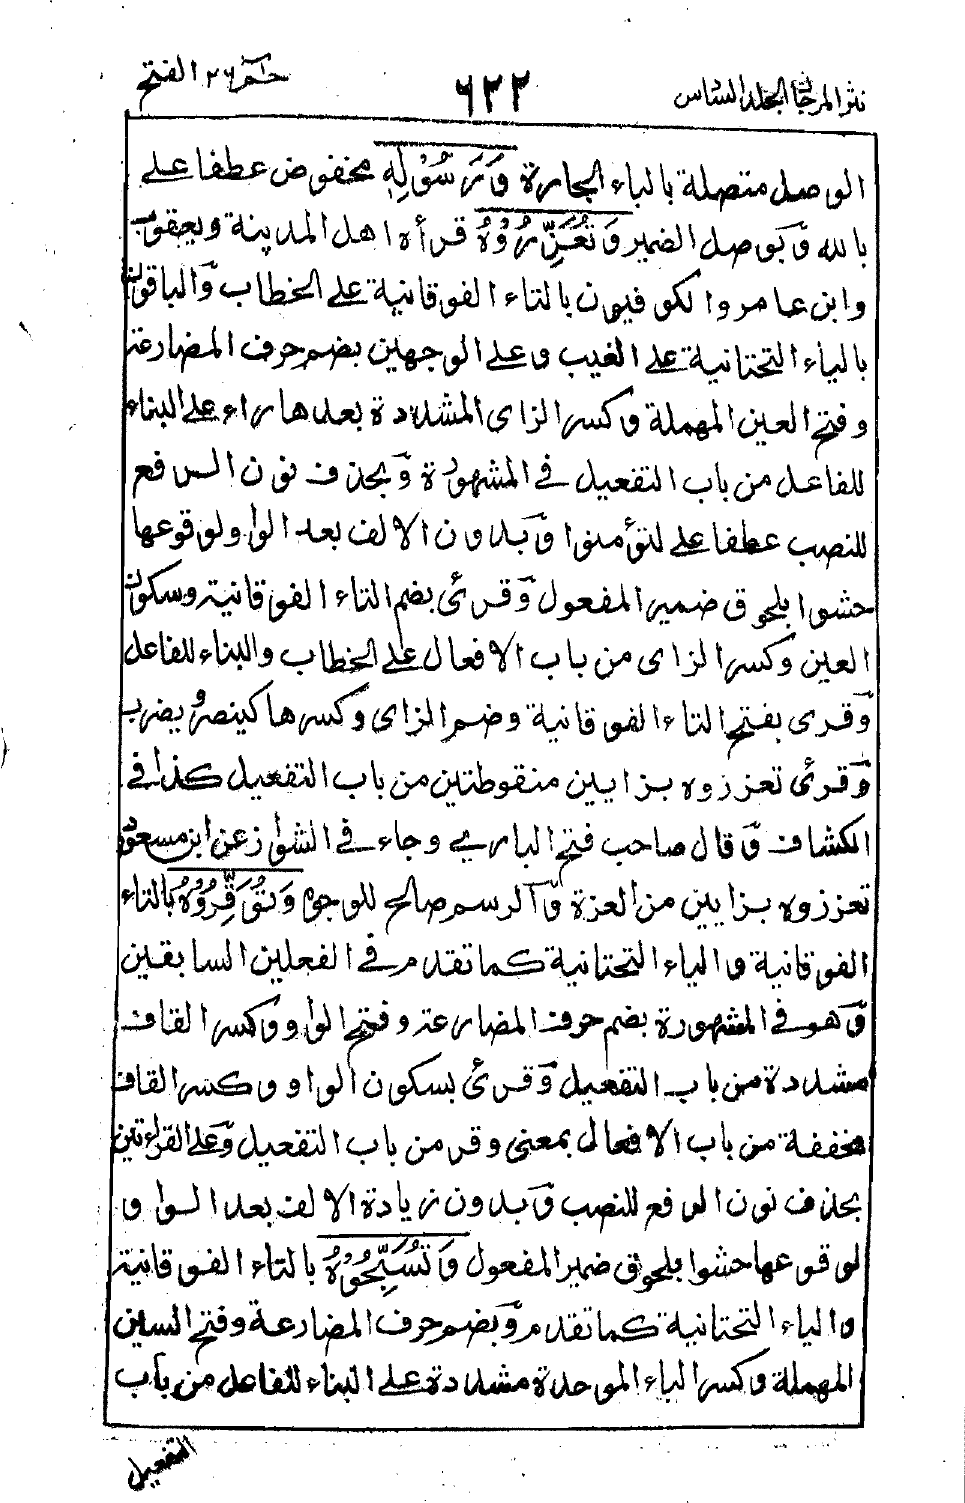 نثر المرجان الجلد السادس
٦٢٢
حٰم ٢٦ الفتح
الوصل متصلة بالباء الجارة وَرَسُوْلِهٖ مخفوض عطفا على
بالله وبوصل الضمير وَتُعَزِّرُوْهُ قرأه اهل المدينة ويعقوب
وابن عامر والكوفيون بالتاء الفوقانية على الخطاب والباقون
بالياء التحتانية على الغيب وعلى الوجهين بضم حرف المضارعة
وفتح العين المهملة وكسر الزاى المشددة بعدها راء على البناء
للفاعل من باب التفعيل فى المشهورة وبحذف نون الرفع
للنصب عطفا على لتؤمنوا وبدون الالف بعد الواو لوقوعها
حشوا بلحوق ضمير المفعول وقرئ بضم التاء الفوقانية وسكون
العين وكسر الزاى من باب الافعال على الخطاب والبناء للفاعل
وقرى بفتح التاء الفوقانية وضم الزاى وكسرها كينصر ويضرب
وقرئ تعززوه بزايين منقوطتين من باب التفعيل كذا فى
الكشاف وقال صاحب فتح البارى وجاء فى الشواذ عن ابن مسعود
تعززوه بزايين من العزة والرسم صالح للوجوه وَتُوَقِّرُوْهُ بالتاء
الفوقانية والياء التحتانية كما تقدم فى الفعلين السابقين
وهو فى المشهورة بضم حرف المضارعة وفتح الواو وكسر القاف
مشددة من باب التفعيل وقرئ بسكون الواو وكسر القاف
مخففة من باب الافعال بمعنى وقر من باب التفعيل وعلى القراءتين
بحذف نون الرفع للنصب وبدون زيادة الالف بعد الواو
لوقوعها حشوا بلحوق ضمير المفعول وَتُسَبِّحُوْهُ بالتاء الفوقانية
والياء التحتانية كما تقدم وبضم حرف المضارعة وفتح السين
المهملة وكسر الباء الموحدة مشددة على البناء للفاعل من باب
التفعيل